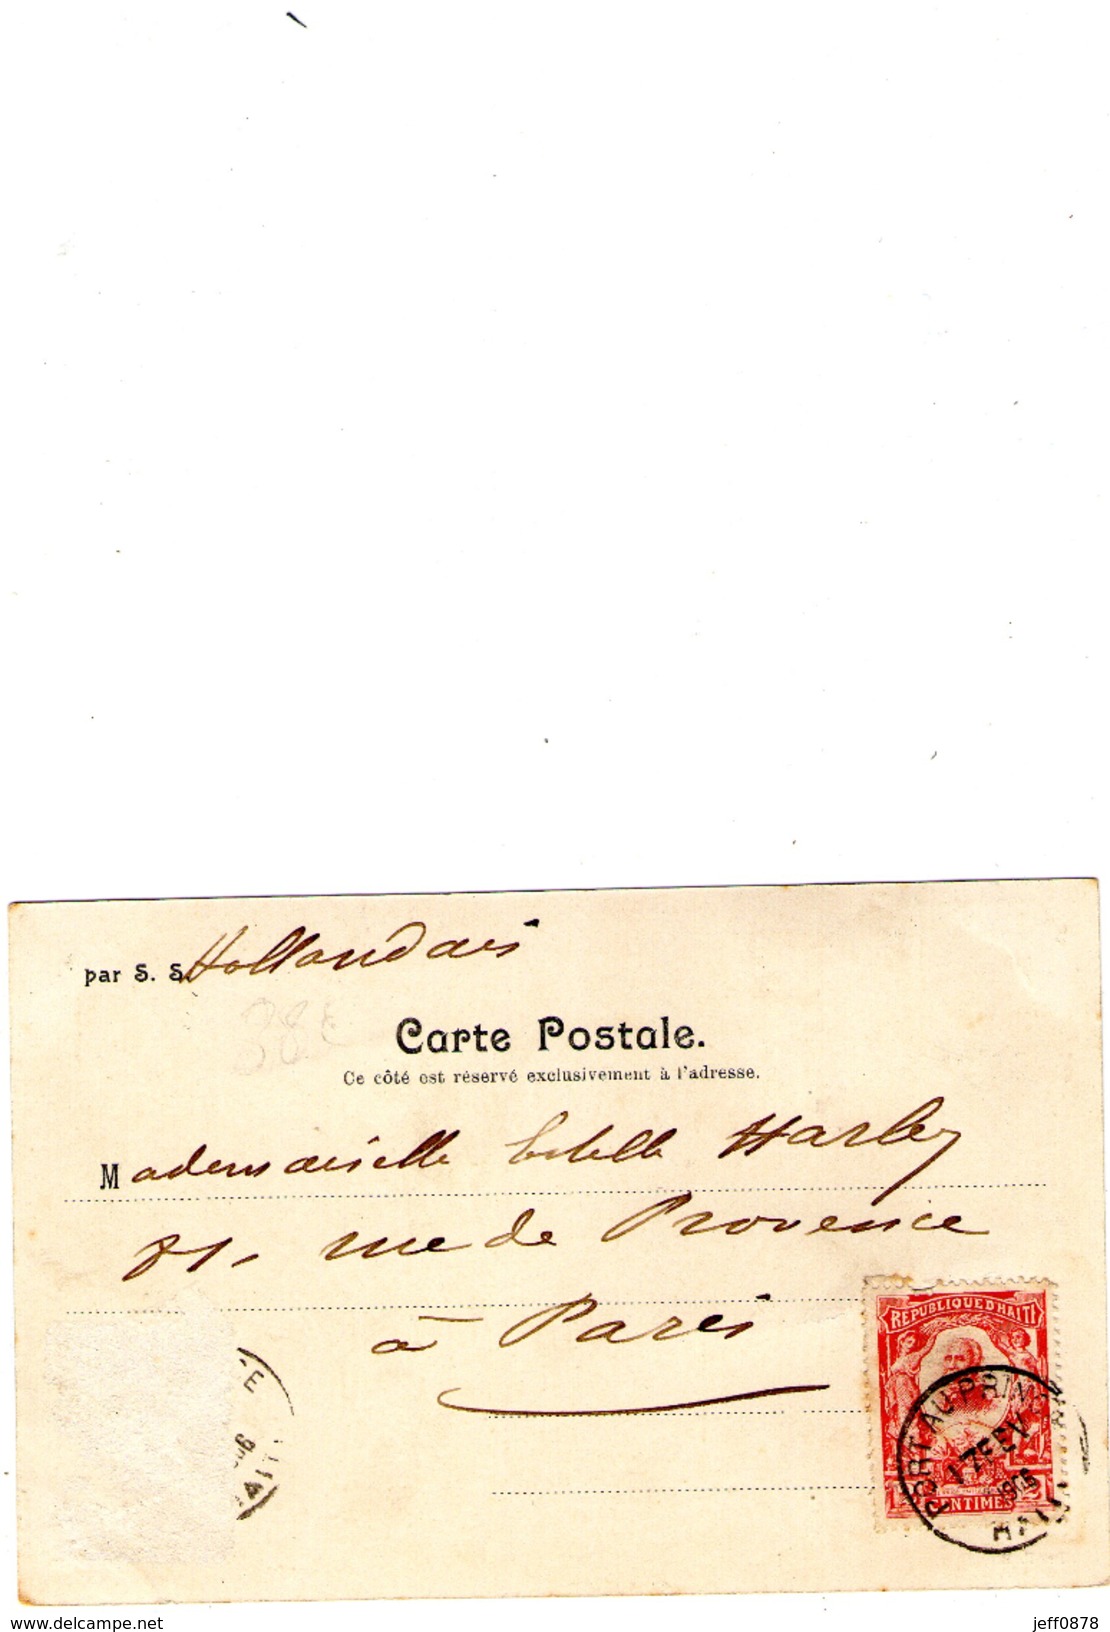 par S. S. Hollandais
Carte Postale.
Ce côté est réservé exclusivement à l'adresse.
Mademoiselle Estelle Harley
81, rue de Provence
à Paris
REPUBLIQUE D'HAITI
PORT AU PRINCE
17 FEV
1905
HAITI
CENTIMES
website: delcampe.net
jeff0878